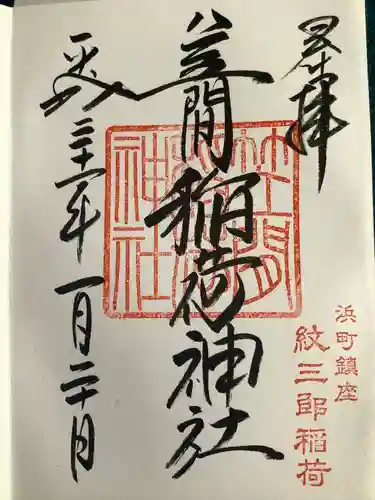 奉拝
笠間稲荷神社
笠間稲荷神社
平成三十一年一月二十日
浜町鎮座
紋三郎稲荷